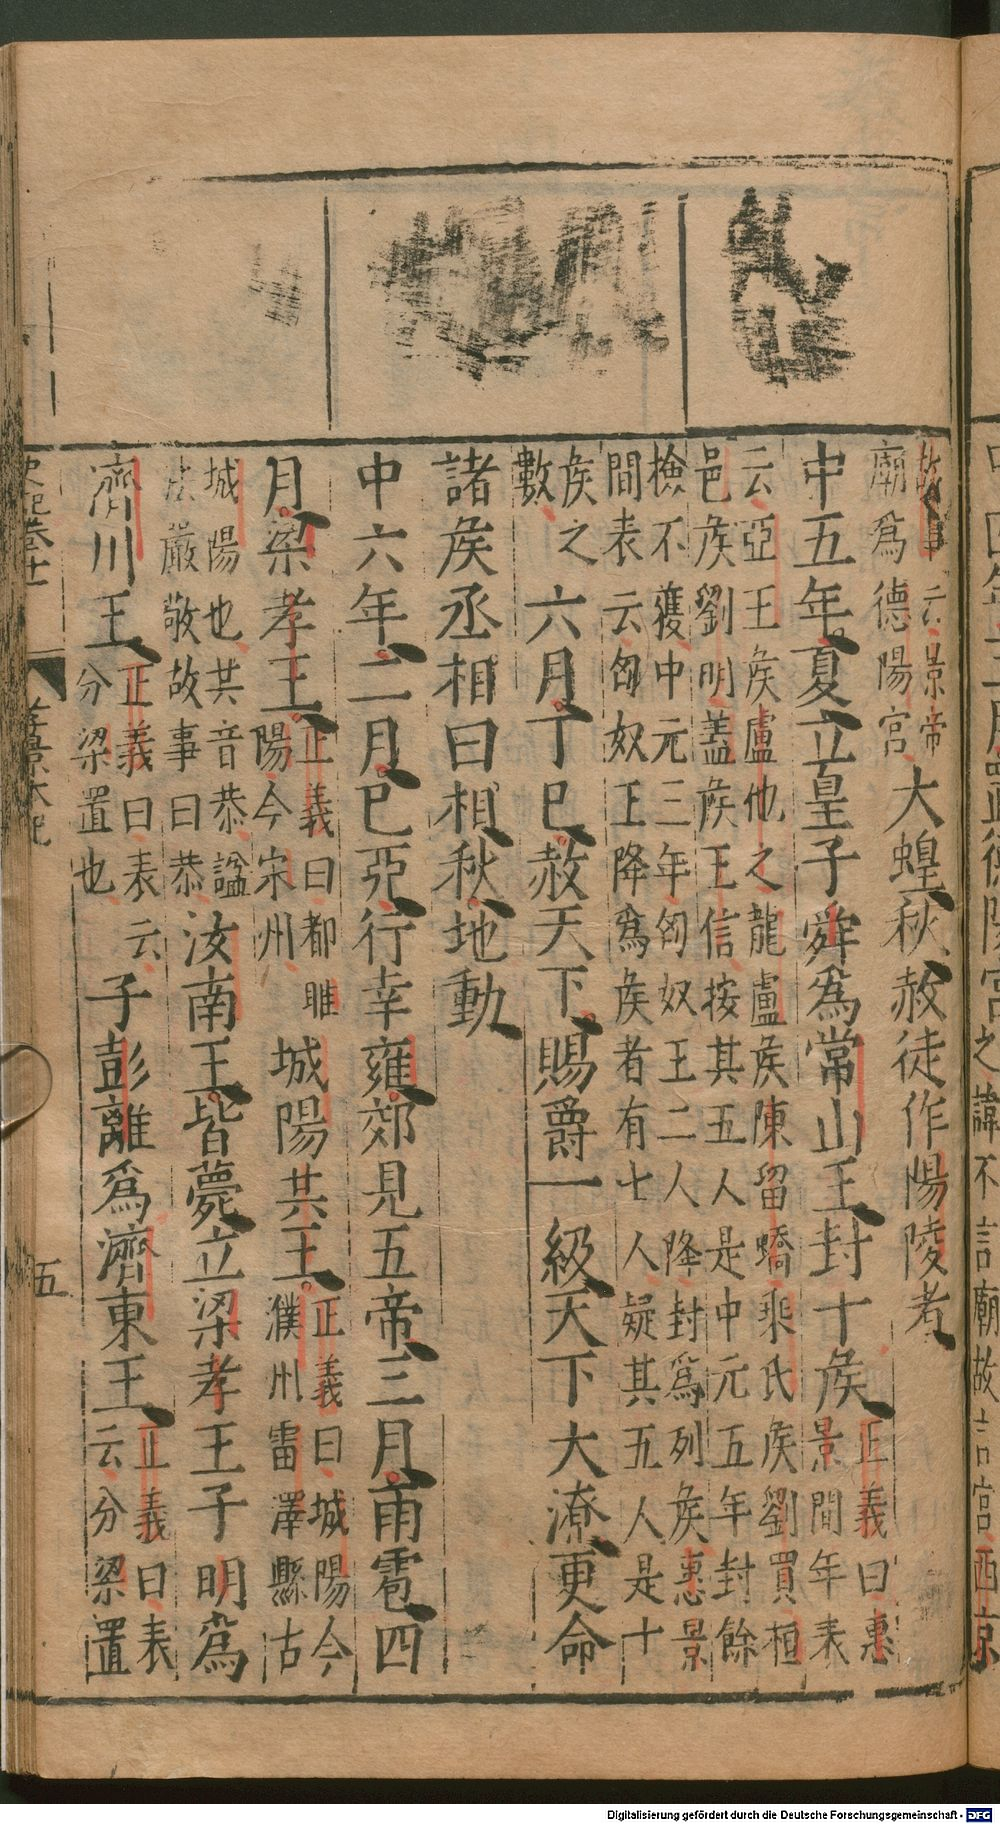 故事云景帝
廟爲德陽宮
大蝗秋赦徒作陽陵者
中五年夏立皇子舜爲常山王封十侯
正義曰惠
景間年表
云亞王侯盧他之龍盧侯陳留蟜乗氏侯劉買桓
邑侯劉明蓋侯王信按其五人是中元五年封餘
檢不獲中元三年匈奴王二人降封爲列侯惠景
間表云匈奴王降爲侯者有七人疑其五人是十
侯之
數
六月丁巳赦天下賜爵一級天下大潦更命
諸侯丞相曰相秋地動
中六年二月已亞行幸雍郊見五帝三月雨雹四
月梁孝王
正義曰都睢
陽今宋州
城陽共王
正義曰城陽今
濮州雷澤縣古
城陽也共音恭諡
法嚴敬故事曰恭
汝南王皆薨立梁孝王子明爲
濟川王
正義曰表云
分梁置也
子彭離爲濟東王
正義曰表
云分梁置
史記卷十一
孝景本紀
五
Digitalisierung gefördert durch die Deutsche Forschungsgemeinschaft - DFG